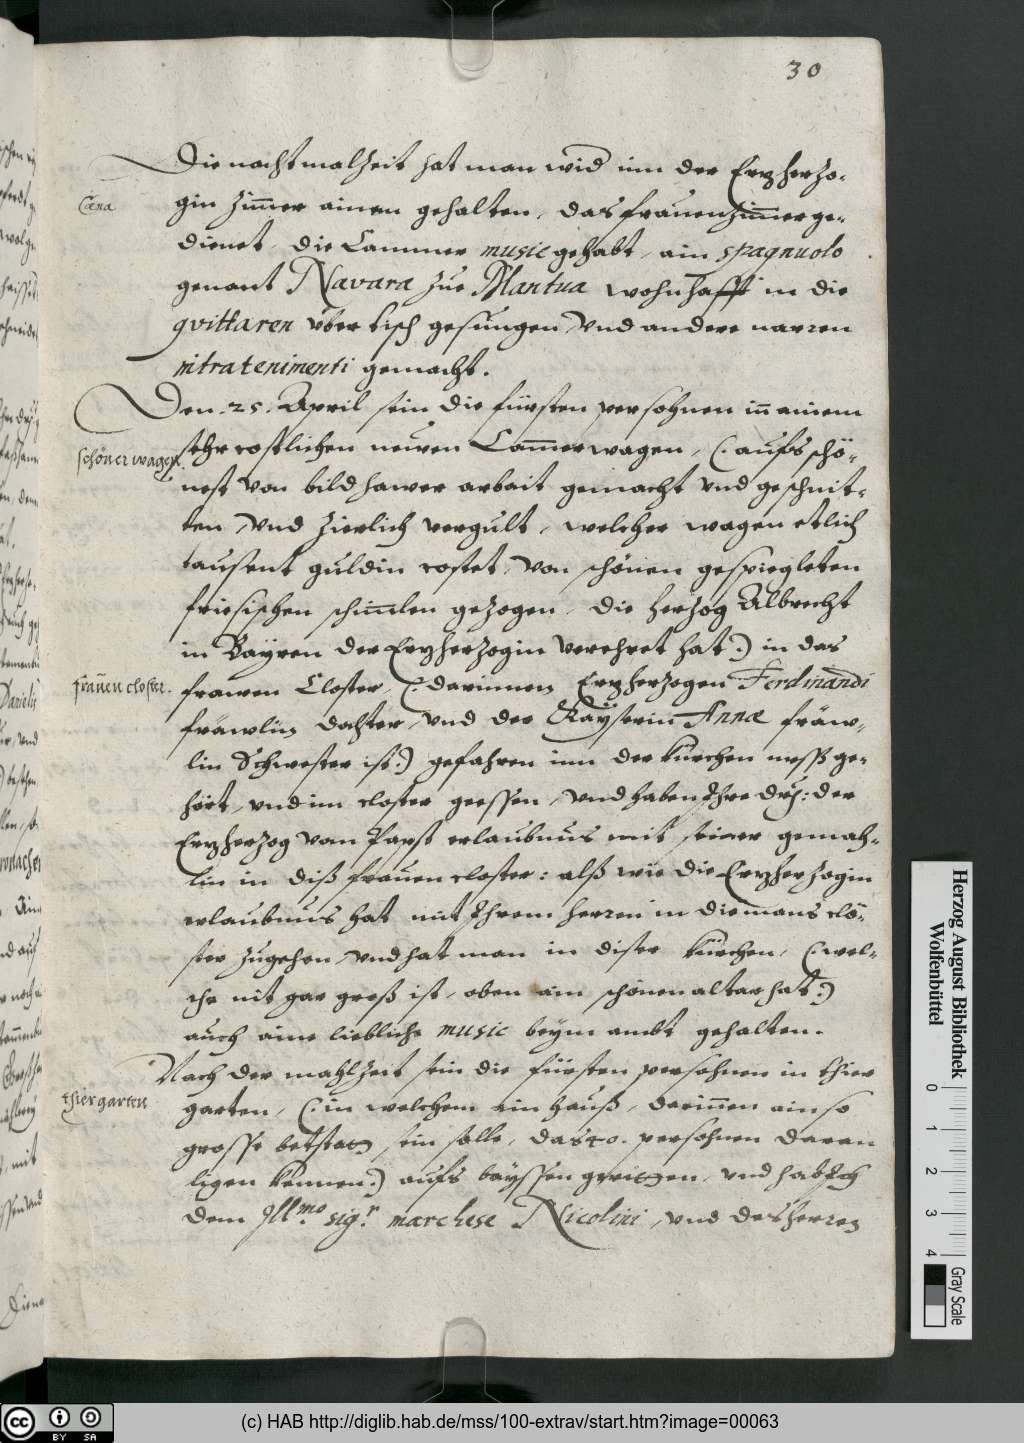 30
Die nachtmalzeit hat man wid inn der Erzherzo-
Cœna
gin zim̄er ainen gehalten, das frauenzim̄er ge-
dienet, die Cammer music gehabt, ain spagnuolo
genant Navara zue Mantua wohnhafft in die
gvittaren über tisch gesungen, vnd andere narren
intratenimenti gemacht.
Den 25. April sein die fürsten persohnen in ainem
schöner wagen
sehr costlichen neuen Cam̄erwagen, (: aufs schö-
nest von bildhawer arbait gemacht vnd geschnit-
ten, vnd zierlich vergult, welcher wagen etlich
tausent guldin costet, von schönen gespiegleten
friesischen schim̄len gezogen, die herzog Albrecht
in Bayren der Erzherzogin verehret hat :) in das
frauen closter.
frawen Closter, (: darinnen Erzherzogen Ferdinandi
fräwlin dochter, vnd der Kayserin Annæ fräw-
lin Schwester ist :) gefahren inn der kürchen mess ge-
hört, vnd im closter geessen, vnd haben Ihre drl: der
Erzherzog vom Papst erlaubnus mit seiner gemah-
lin in diß frauen closter: alß wie die Erzherzogin
erlaubnus hat mit Ihrem herren in die mans clö-
ster zugehen, vnd hat man in diser kürchen, (: wel-
che nit gar groß ist, oben ain schönen altar hat :)
auch aine liebliche music beym ambt gehalten.
Nach der mahlzeit sein die fürsten persohnen in thier
thiergarten
garten, (: in welchem ein hauß, darinnen ain so
grosse betstatt sein solle, das 40. persohnen daran
ligen kennen :) aufs bayssen geritten, vnd hab Ich
dem Illmo. sigr. marchese Nicolini, vnd des herren
(c) HAB http://diglib.hab.de/mss/100-extrav/start.htm?image=00063
Herzog August Bibliothek
Wolfenbüttel
0 1 2 3 4
Gray Scale
cc BY SA